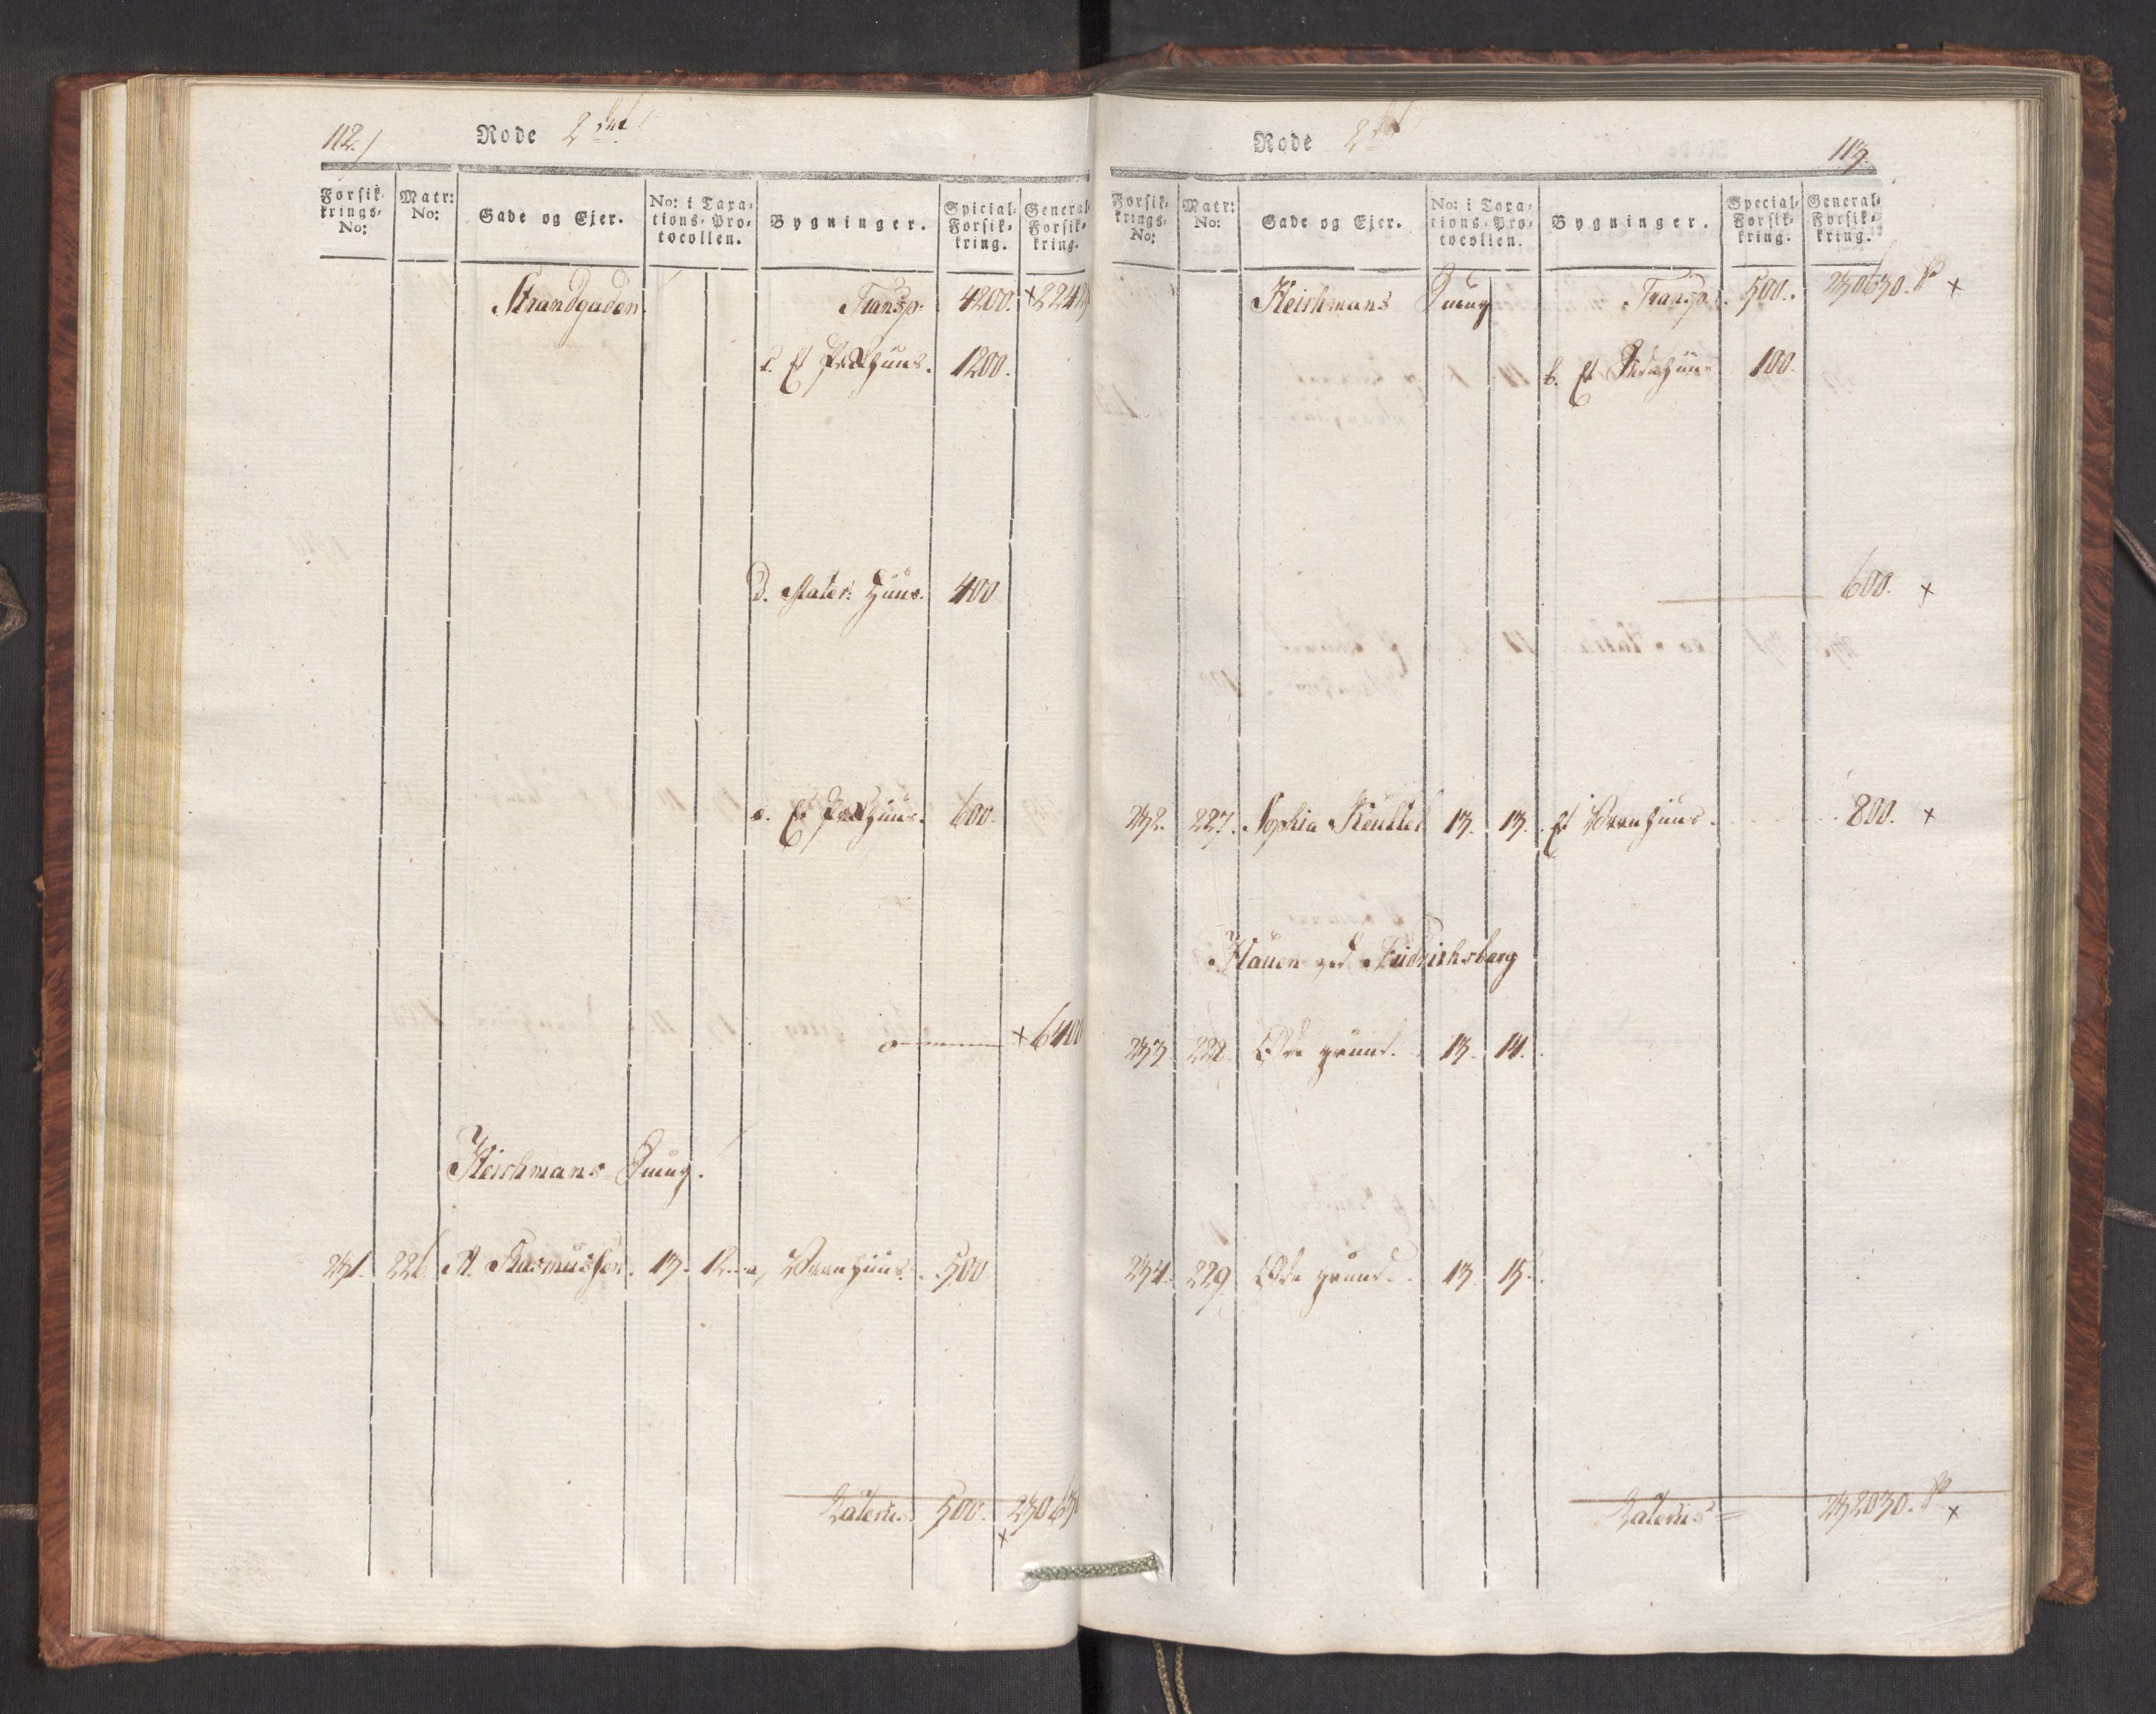 112.
Rode 2det
Forsik-
krings-
No:
Matr:
No:
Gade og Ejer.
No: i Taxa-
tions-Pro-
tocollen.
Bygninger.
Spicial-
Forsik-
kring.
General
Forsik-
kring.
Strandgaden Transp. 4200.
c. Et Pakhuus. 1200.
d. Mater: Huus. 400
e. Et Pakhuus. 600.
6400
Fleishmans Smug.
231. 226. A. Rasmussen. 13. 12. a, Vaanhuus. 500
Lateris. 500.
Rode 2det
113.
Forsik-
krings-
No:
Matr:
No:
Gade og Ejer.
No: i Taxa-
tions-Pro-
tocollen.
Bygninger.
Special-
Forsik-
kring.
General-
Forsik-
kring.
Fleishmans Smug Transp. 500. 230630.
b. Et 100.
600.
232. 227. Sophia 13. 13. Et Vaanhuus. 800.
ved Fridrichsberg
233 228. Øde grund. 13. 14.
234. 229 Øde grund. 13. 15.
Lateris 232030.